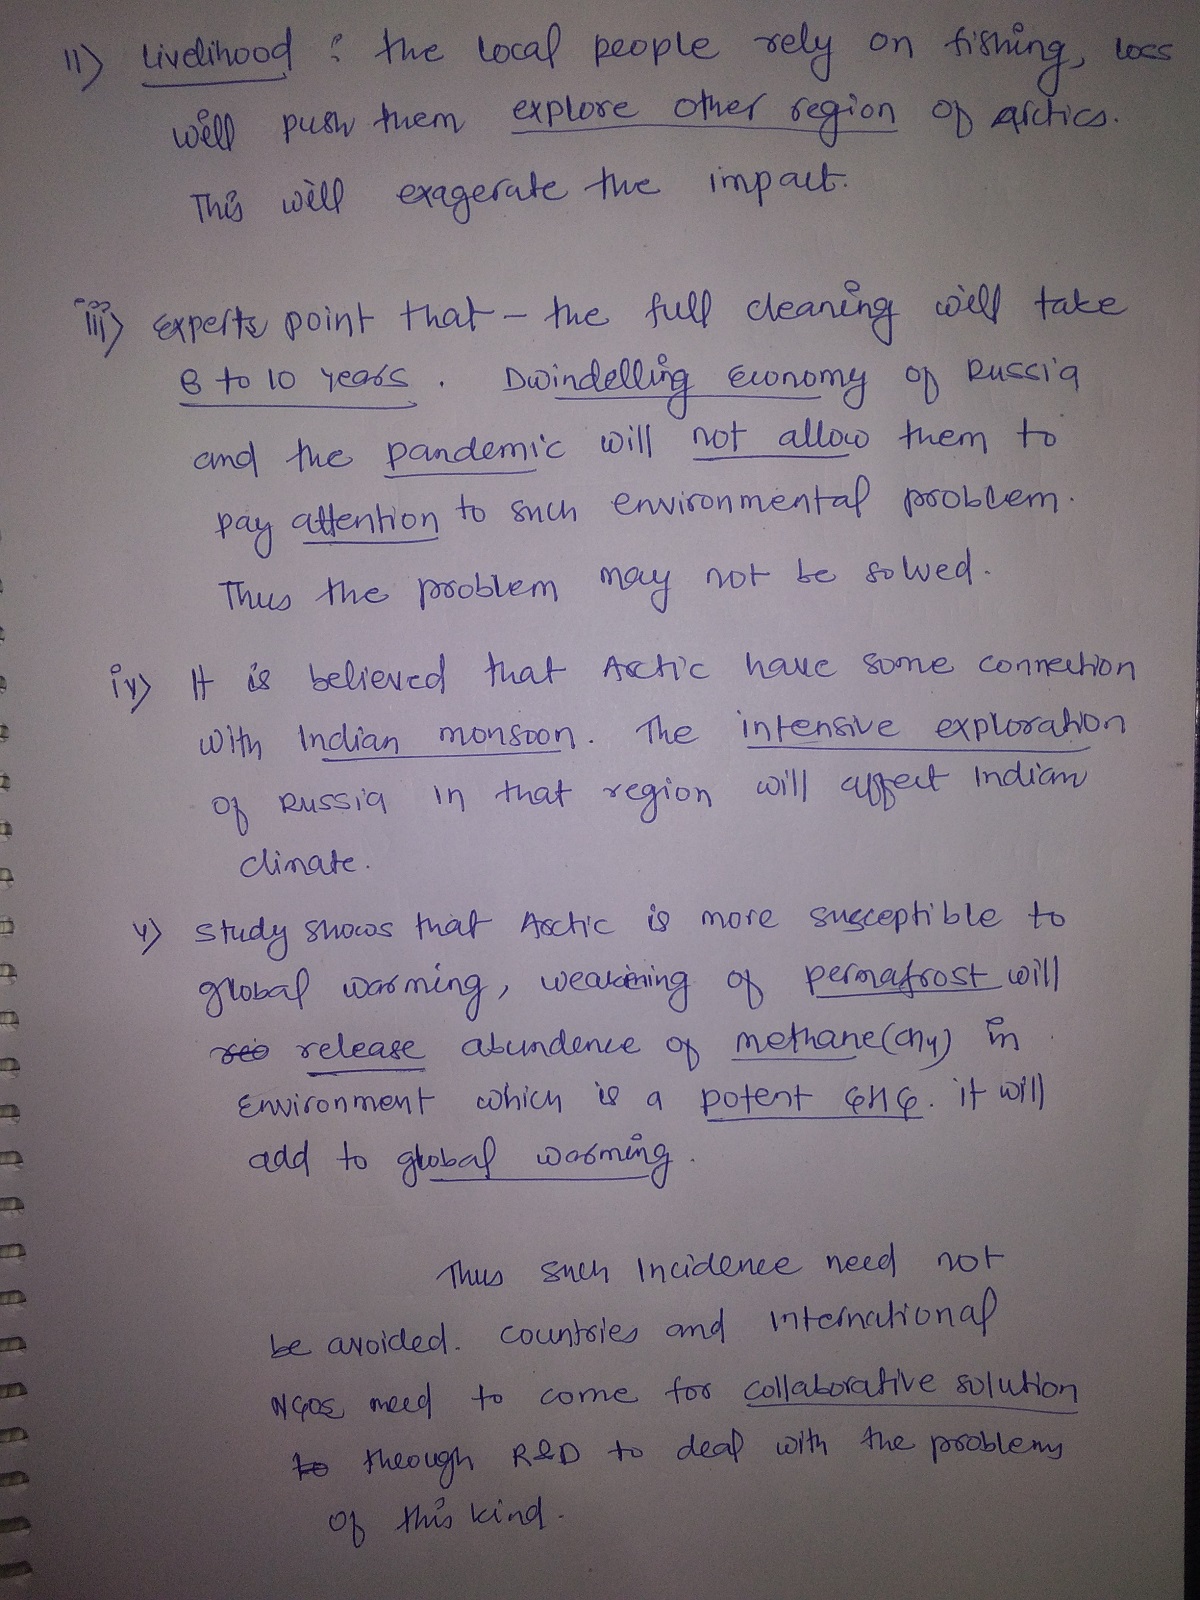 ii) Livelihood : the local people rely on fishing, loss
will push them explore other region of Arctics.
This will exagerate the impact.
iii) Experts point that - the full cleaning will take
8 to 10 years. Dwindelling Economy of Russia
and the pandemic will not allow them to
pay attention to such environmental problem.
Thus the problem may not be solved.
iv) It is believed that Arctic have some connection
with Indian monsoon. The intensive exploration
of Russia in that region will affect Indian
climate.
v) Study shows that Arctic is more susceptible to
global warming, weakening of permafrost will
release abundence of methane (CH4) in
Environment which is a potent GHG. it will
add to global warming.
Thus such Incidence need not
be avoided. Countries and International
NGOs need to come for collaborative solution
to through R&D to deal with the problems
of this kind.